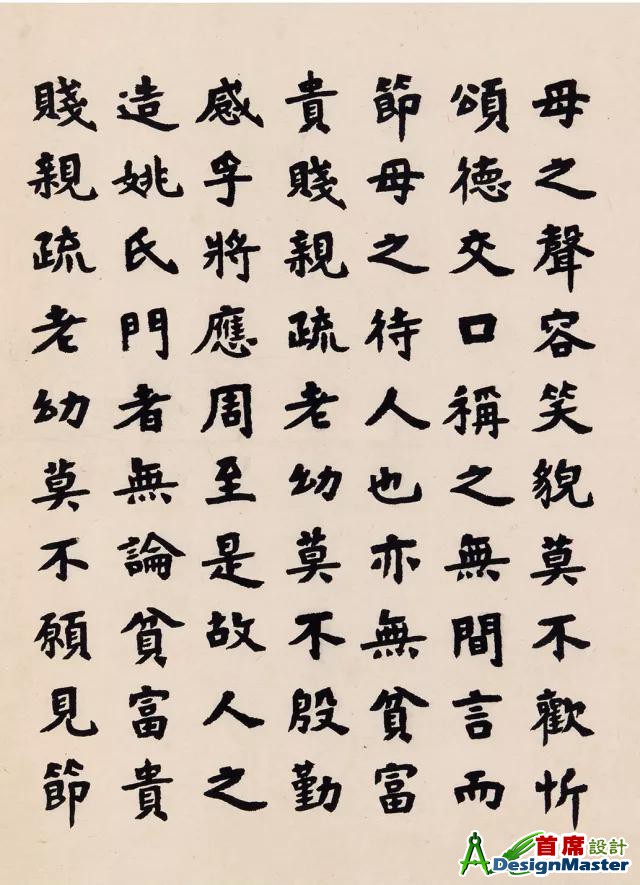 母之聲容笑貌莫不歡忻
頌德交口稱之無間言而
節母之待人也亦無貧富
貴賤親疏老幼莫不殷勤
感孚將應周至是故人之
造姚氏門者無論貧富貴
賤親疏老幼莫不願見節
首席設計
ADesignMaster